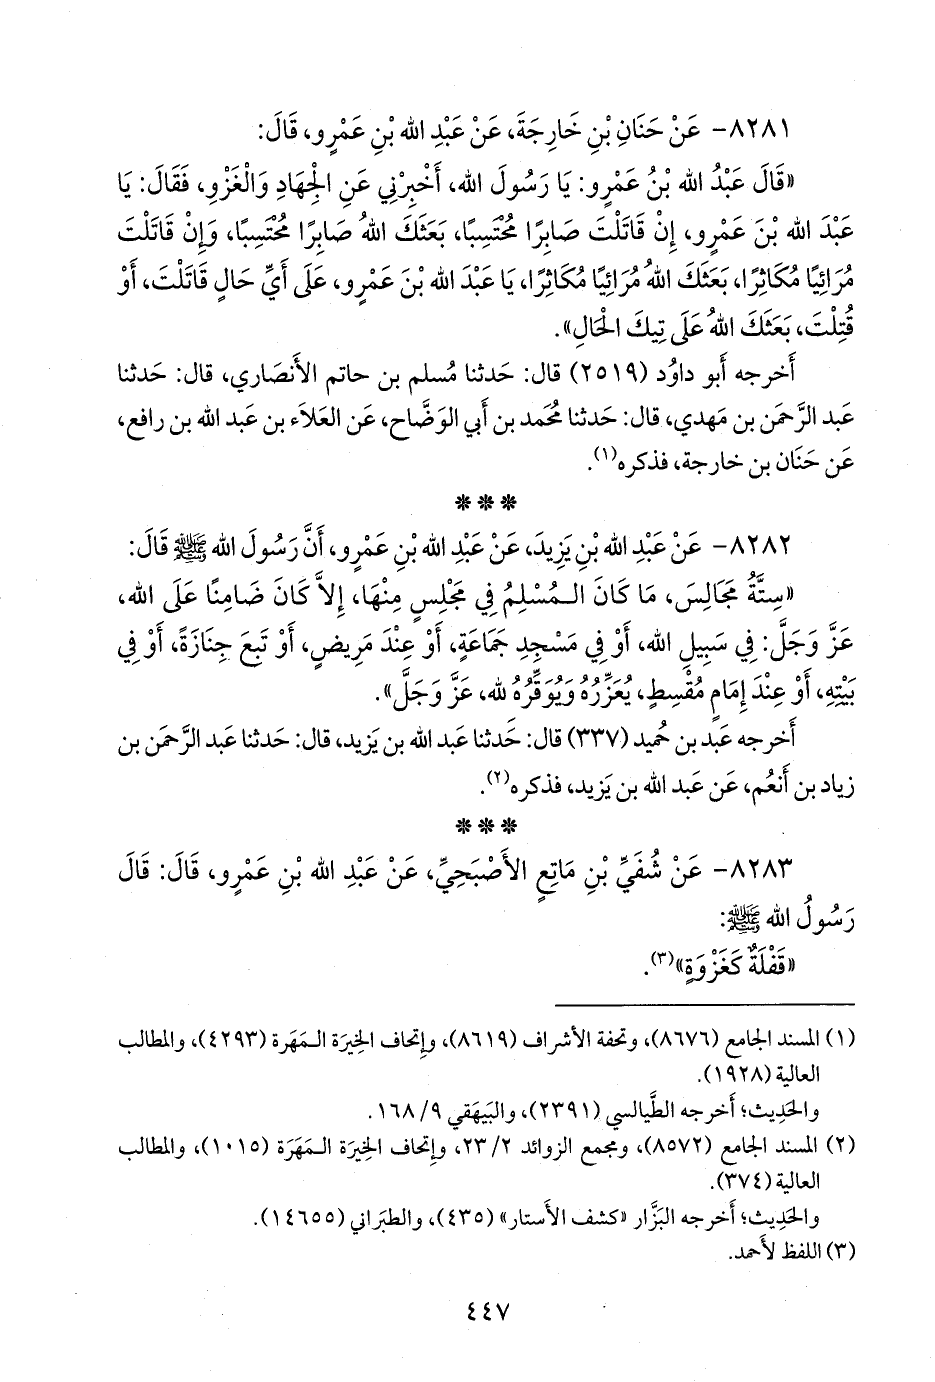 ٨٢٨١- عَنْ حَنَانِ بْنِ خَارِجَةَ، عَنْ عَبْدِ الله بْنِ عَمْرٍو، قَالَ:
«قَالَ عَبْدُ الله بْنُ عَمْرٍو: يَا رَسُولَ الله، أَخْبِرْنِي عَنِ الْجِهَادِ وَالْغَزْوِ، فَقَالَ: يَا
عَبْدَ الله بْنَ عَمْرٍو، إِنْ قَاتَلْتَ صَابِرًا مُحْتَسِبًا، بَعَثَكَ اللهُ صَابِرًا مُحْتَسِبًا، وَإِنْ قَاتَلْتَ
مُرَائِيًا مُكَاثِرًا، بَعَثَكَ اللهُ مُرَائِيًا مُكَاثِرًا، يَا عَبْدَ الله بْنَ عَمْرٍو، عَلَى أَيِّ حَالٍ قَاتَلْتَ، أَوْ
قُتِلْتَ، بَعَثَكَ اللهُ عَلَى تِيكَ الْحَالِ».
أَخرجه أَبو داوُد (٢٥١٩) قال: حَدثنا مُسلم بن حاتم الأَنصَاري، قال: حَدثنا
عَبد الرَّحمَن بن مَهدي، قال: حَدثنا مُحَمد بن أَبي الوَضَّاح، عَن العَلاَء بن عَبد الله بن رافع،
عَن حَنَان بن خارجة، فذكره(١).
* * *
٨٢٨٢- عَنْ عَبْدِ الله بْنِ يَزِيدَ، عَنْ عَبْدِ الله بْنِ عَمْرٍو، أَنَّ رَسُولَ الله ﷺ قَالَ:
«سِتَّةُ مَجَالِسَ، مَا كَانَ الْمُسْلِمُ فِي مَجْلِسٍ مِنْهَا، إِلاَّ كَانَ ضَامِنًا عَلَى الله،
عَزَّ وَجَلَّ: فِي سَبِيلِ الله، أَوْ فِي مَسْجِدِ جَمَاعَةٍ، أَوْ عِنْدَ مَرِيضٍ، أَوْ تَبِعَ جِنَازَةً، أَوْ فِي
بَيْتِهِ، أَوْ عِنْدَ إِمَامٍ مُقْسِطٍ، يُعَزِّرُهُ وَيُوَقِّرُهُ لله، عَزَّ وَجَلَّ».
أَخرجه عَبد بن حُميد (٣٣٧) قال: حَدثنا عَبد الله بن يَزيد، قال: حَدثنا عَبد الرَّحمَن بن
زياد بن أَنعُم، عَن عَبد الله بن يَزيد، فذكره(٢).
* * *
٨٢٨٣- عَنْ شُفَيِّ بْنِ مَاتِعٍ الأَصْبَحِيِّ، عَنْ عَبْدِ الله بْنِ عَمْرٍو، قَالَ: قَالَ
رَسُولُ الله ﷺ:
«قَفْلَةٌ كَغَزْوَةٍ»(٣).
(١) المسند الجامع (٨٦٧٦)، وتحفة الأشراف (٨٦١٩)، وإتحاف الخِيرَة الـمَهَرة (٤٢٩٣)، والمطالب
العالية (١٩٢٨).
والحَدِيث؛ أَخرجه الطَّيالسي (٢٣٩١)، والبَيهَقي ٩/ ١٦٨.
(٢) المسند الجامع (٨٥٧٢)، ومجمع الزوائد ٢/ ٢٣، وإتحاف الخِيرَة الـمَهَرَة (١٠١٥)، والمطالب
العالية (٣٧٤).
والحَدِيث؛ أَخرجه البَزَّار «كشف الأَستار» (٤٣٥)، والطبَراني (١٤٦٥٥).
(٣) اللفظ لأَحمد.
٤٤٧